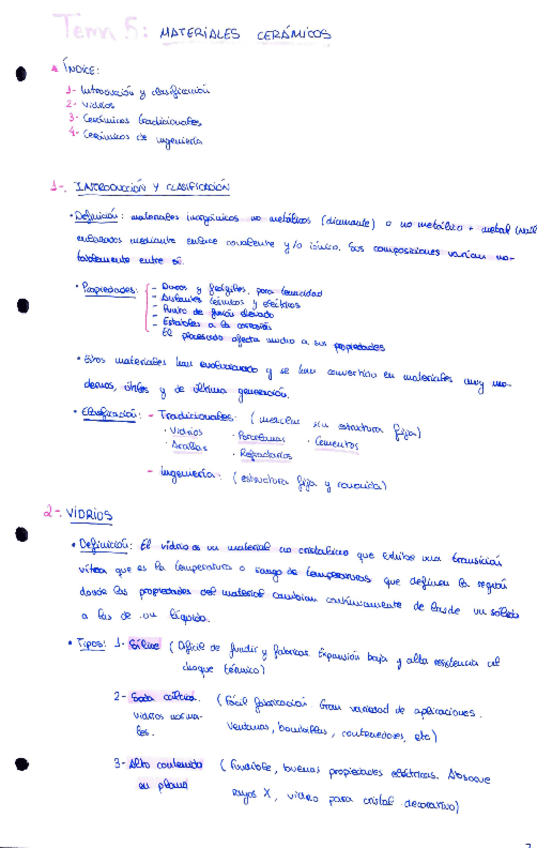 Tema 5: MATERIALES CERÁMICOS
ÍNDICE:
1- Introducción y clasificación
2- Vidrios
3- Cerámicos tradicionales
4- Cerámicos de ingeniería
1-. INTRODUCCIÓN Y CLASIFICACIÓN
• Definición: materiales inorgánicos no metálicos (diamante) o no metálico + metal (NaCl
enlazados mediante enlace covalente y/o iónico. Sus composiciones varían no-
tablemente entre sí.
• Propiedades: - Duros y frágiles, poca tenacidad
- Aislantes térmicos y eléctricos
- Punto de fusión elevado
- Estables a la corrosión
El procesado afecta mucho a sus propiedades
• Estos materiales han evolucionado y se han convertido en materiales muy mo-
dernos, útiles y de última generación.
• Clasificación: - Tradicionales: (mezclas sin estructura fija)
· Vidrios · Porcelanas · Cementos
· Arcillas · Refractarios
- Ingeniería: (estructura fija y conocida)
2-. VIDRIOS
• Definición: El vidrio es un material no cristalino que exhibe una transición
vítrea que es la temperatura o rango de temperaturas que definen la región
donde las propiedades del material cambian continuamente de las de un sólido
a las de un líquido.
• Tipos: 1- Sílice (Difícil de fundir y fabricar. Expansión baja y alta resistencia al
choque térmico)
2- Soda cálcica. (Fácil fabricación. Gran variedad de aplicaciones.
vidrios norma- Ventanas, bombillas, contenedores, etc)
les.
3- Alto contenido (Fundible, buenas propiedades eléctricas. Absorve
en plomo rayos X, vidrio para cristal decorativo)